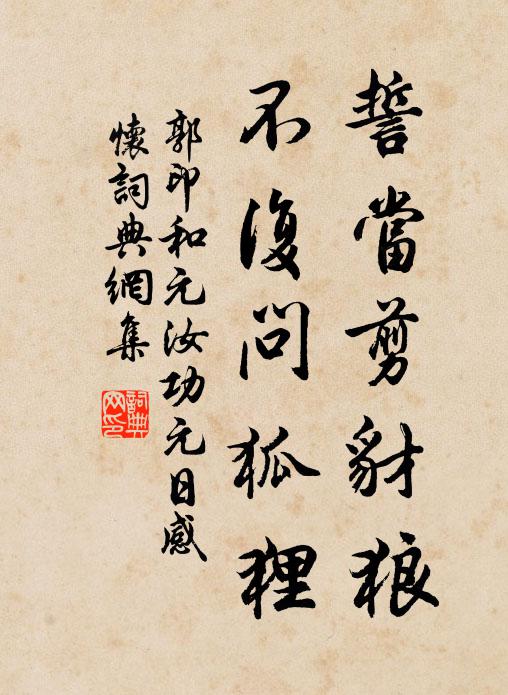 誓當剪豺狼
不復問狐狸
郭印和元汝功元日感
懷詞典網集
詞典網印